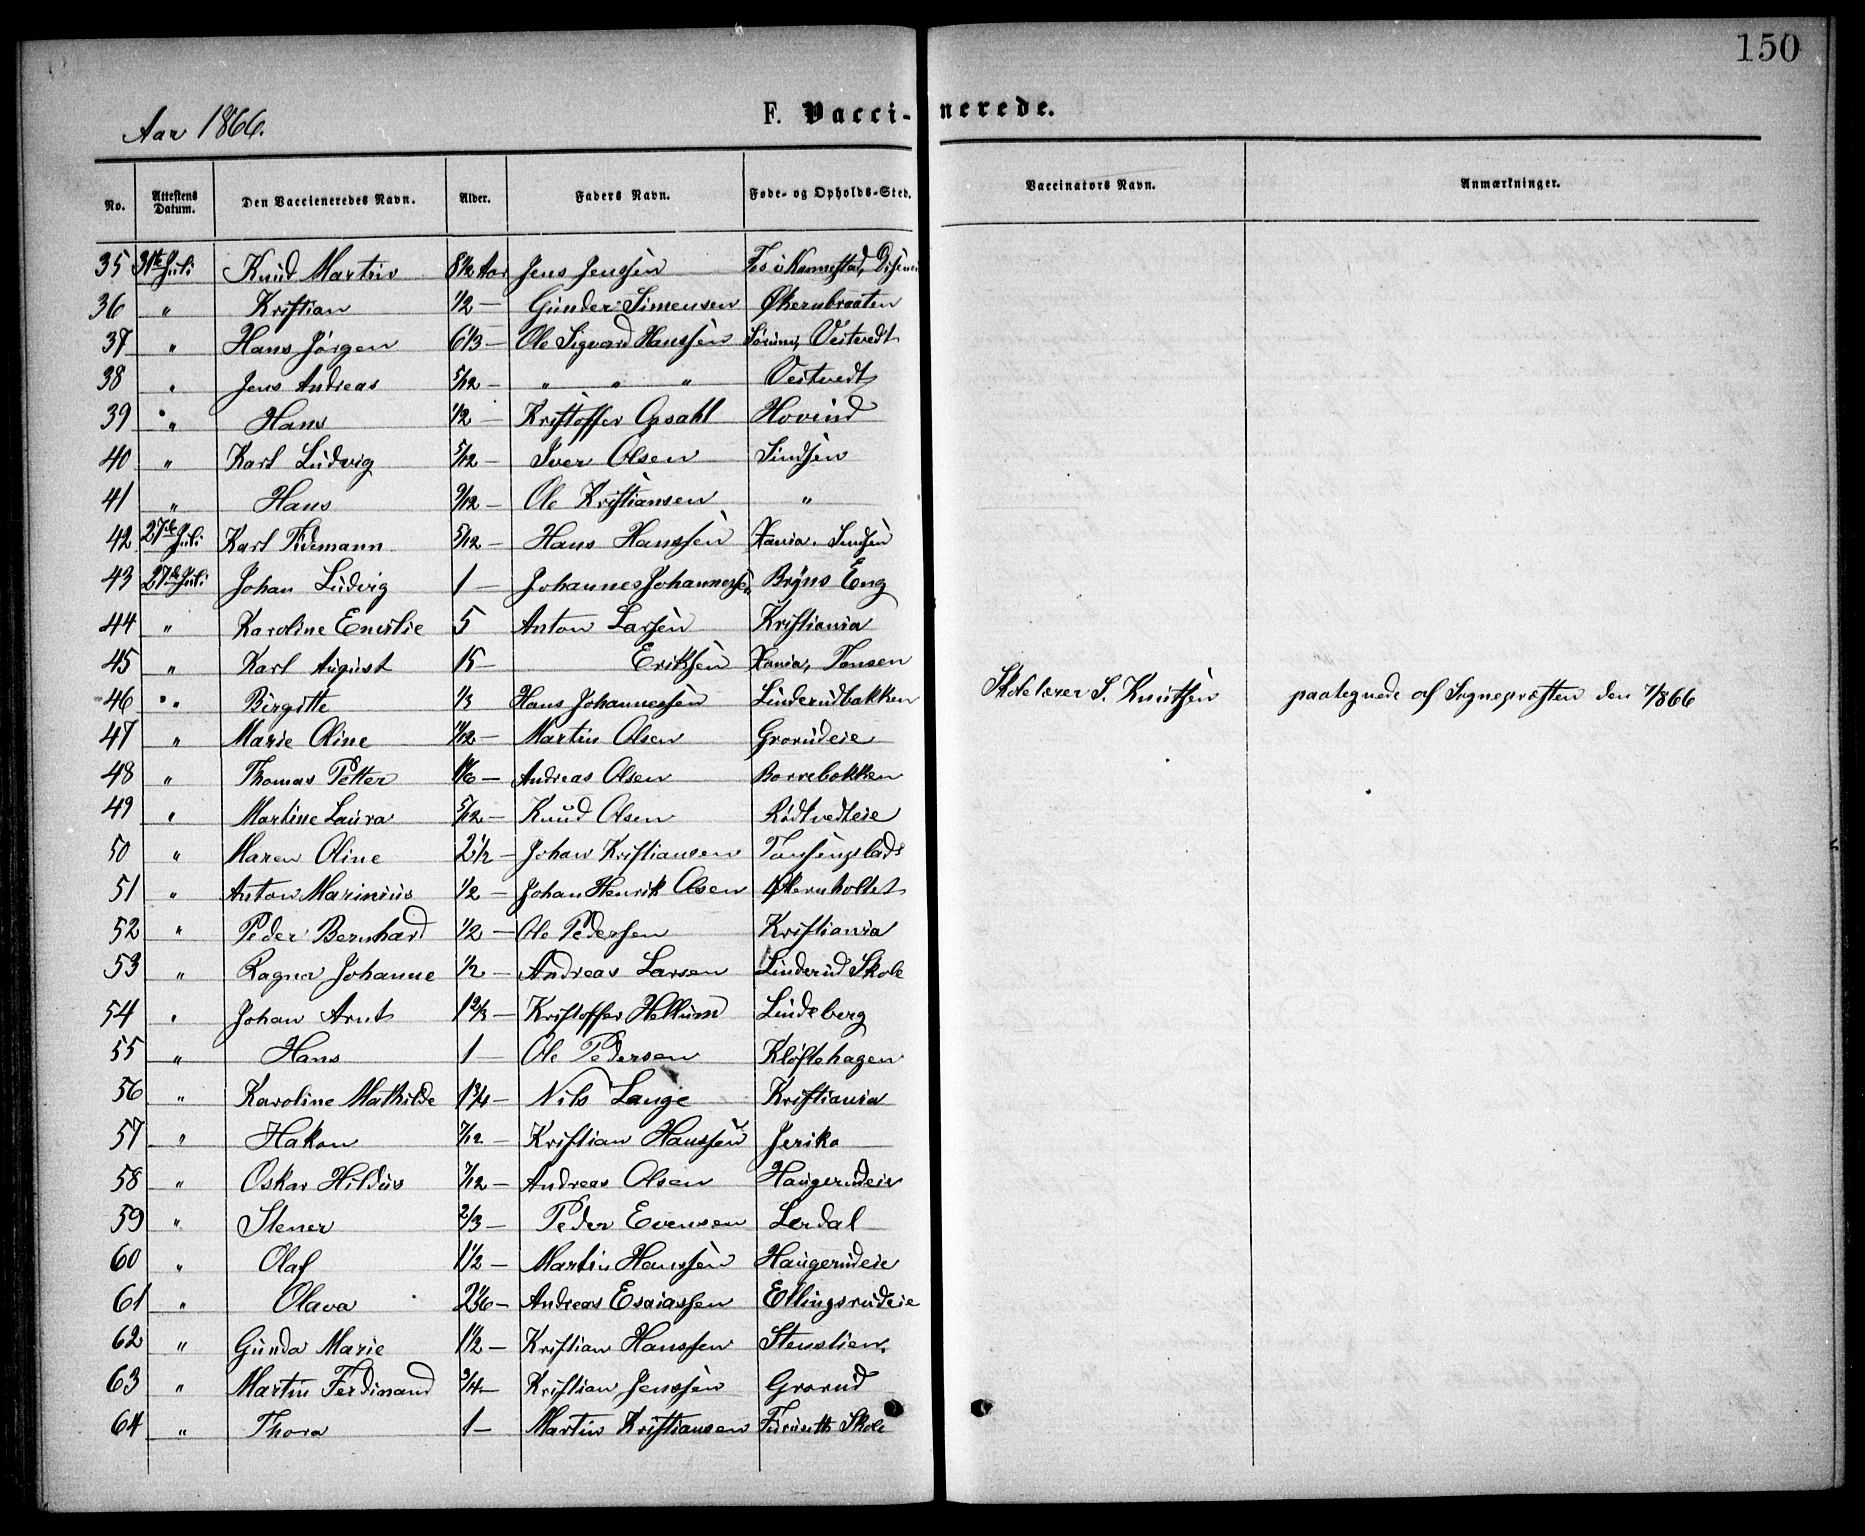 150
Aar 1866.
F. Vaccinerede.
No. Attestens Datum. Den Vaccineredes Navn. Alder. Faders Navn. Føde- og Opholds-Sted. Vaccinators Navn. Anmærkninger.
35 31te Juli Knud Martin 8 1/2 Aar Jens Jenssen
36 " Kristian 1/2 — Gunder Simensen Økernbraaten
37 " Hans Jörgen 6 1/3 — Ole Sigvard Hanssen Sörum, Veitvedt
38 " Jens Andreas 5/12 — " " " Veitvedt
39 " Hans 1/2 — Kristoffer Opsahl Hovind
40 " Karl Ludvig 5/12 — Iver Olsen Sindsen
41 " Hans 9/12 — Ole Kristiansen "
42 27de Juli Karl Tidemann 5/12 — Hans Hanssen Xania. Sinsen
43 27de Juli Johan Ludvig 1 — Johannes Johannessen Bryns Eng
44 " Karoline Emilie 5 Anton Larsen Kristiania
45 " Karl August 15 — Eriksen Xania, Tonsen
46 " Birgitte 1/3 Hans Johannessen Linderudbakken Skolelærer S. Knutsen paategnede af Sognepræsten den 7/866
47 " Marie Oline 11/12 — Martin Olsen Grorudeie
48 " Thomas Petter 1 1/6 — Andreas Olsen Borrebakken
49 " Martine Laura 5/12 — Knud Olsen Rödtvedteie
50 " Maren Oline 2 1/2 — Johan Kristiansen Tonsenplads
51 " Anton Marinius 1/2 — Johan Henrik Olsen Økernholtet
52 " Peder Bernhard 1/2 — Ole Pedersen Kristiania
53 " Ragna Johanne 1/2 — Andreas Larsen Linderud Skole
54 " Johan Arnt 1 2/3 — Kristoffer Hellum Lindeberg
55 " Hans 1 — Ole Pedersen Klöftehagen
56 " Karoline Mathilde 1 3/4 — Nils Lange Kristiania
57 " Hakon 7/12 — Kristian Hanssen Jeriko
58 " Oskar Hildus 7/12 — Andreas Olsen Haugerudeie
59 " Stener 2/3 — Peder Evensen Lerdal
60 " Olaf 1 1/2 — Martin Hanssen Haugerudeie
61 " Olava 2 1/6 — Andreas Esaiassen Ellingsrudeie
62 " Gunda Marie 1 1/2 — Kristian Hanssen Stenslien.
63 " Martin Ferdinand 3/4 — Kristian Jenssen Grorud
64 " Thora 1 — Martin Kristiansen Furuseth Skole